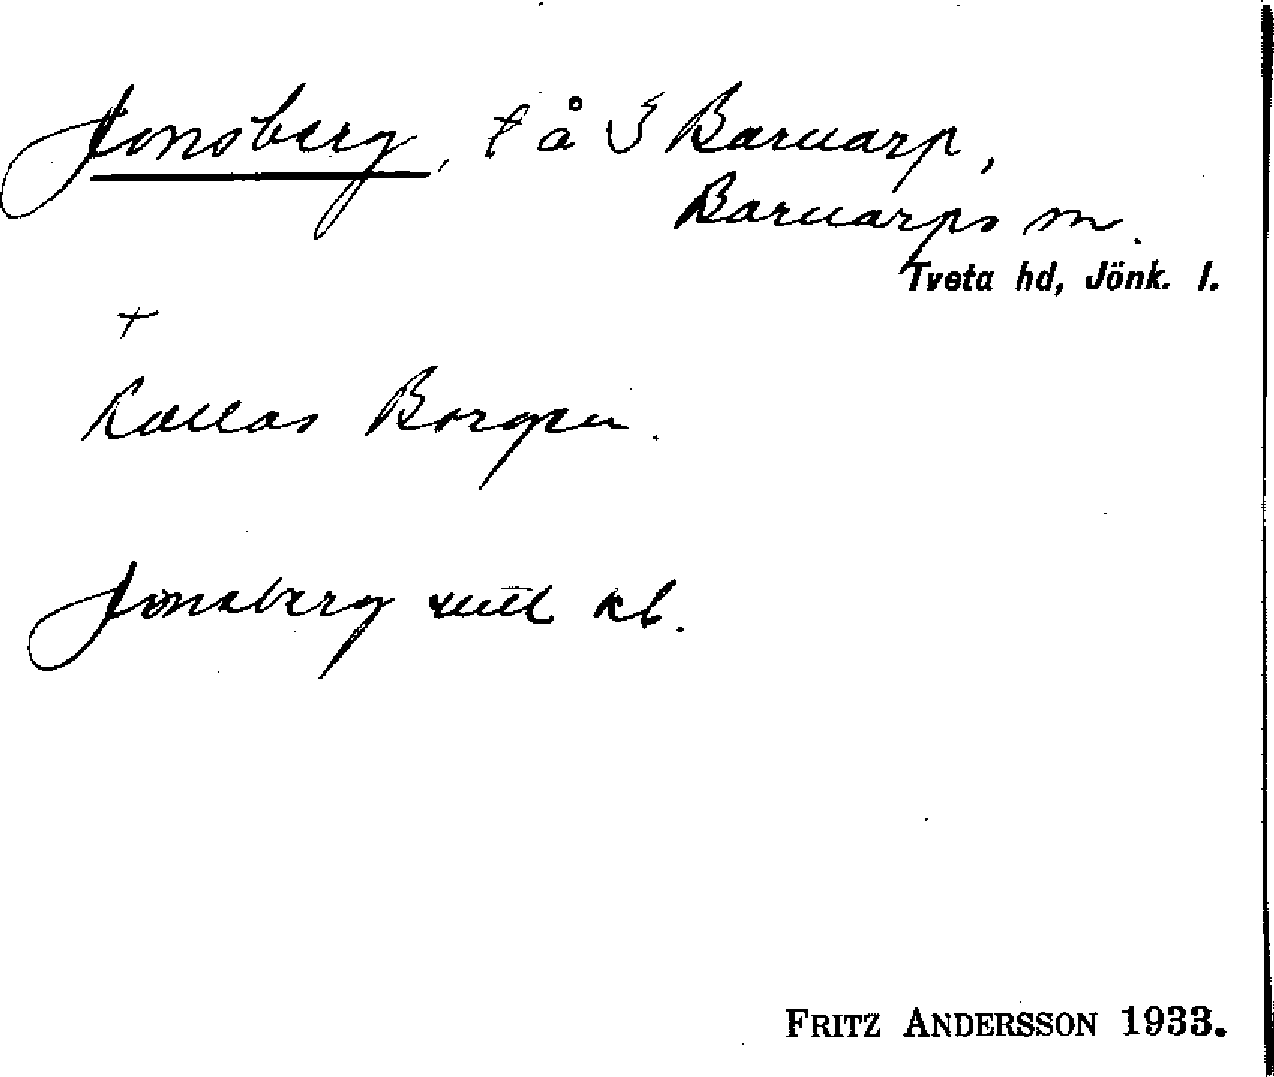 Jonsberg, t å S Barnarp,
Barnarps sn.
Tveta hd, Jönk. l.
+
Kallas Borgen.
Jonsberg enl kb.
FRITZ ANDERSSON 1933.